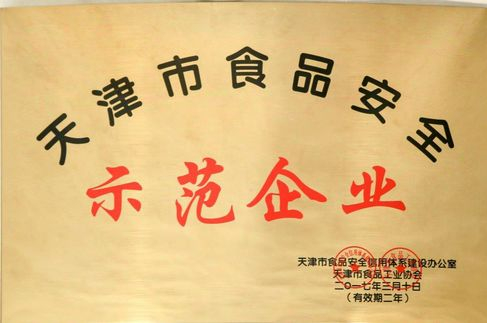 天津市食品安全
示范企业
天津市食品安全信用体系建设办公室
天津市食品工业协会
二〇一七年三月十日
（有效期二年）